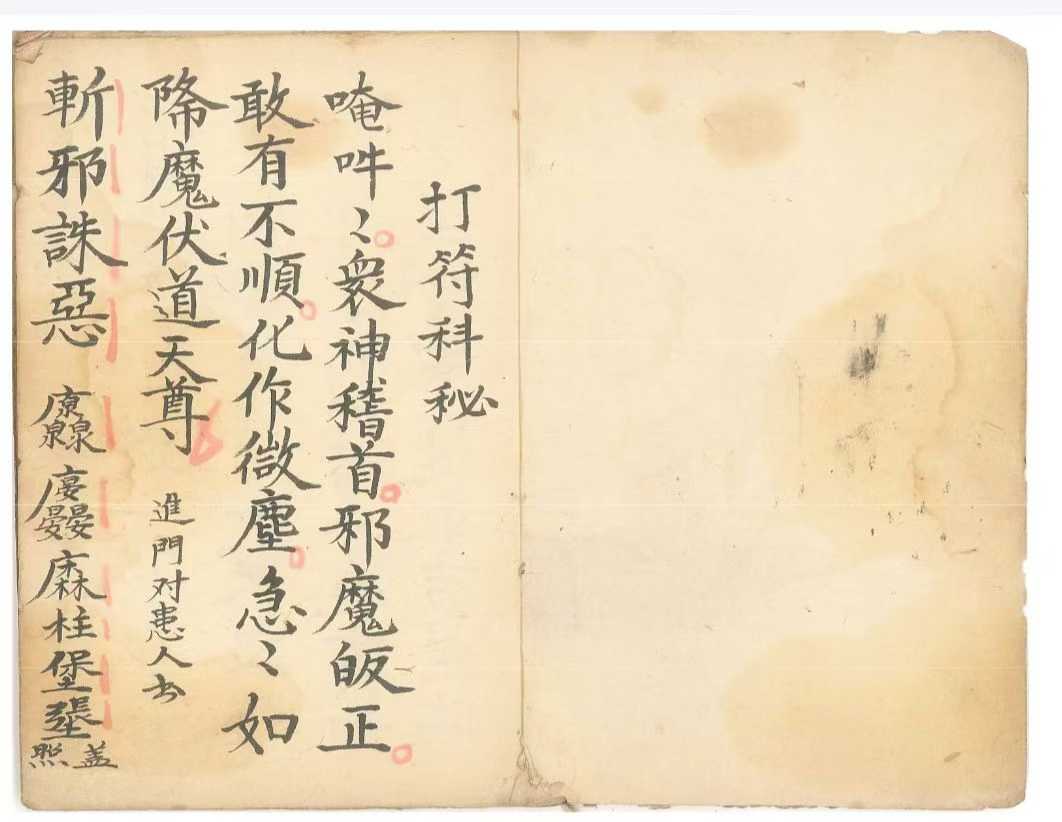 打符科秘
唵吽〻衆神稽首邪魔皈正
敢有不順化作微塵急〻如
降魔伏道天尊 進門对患人书
斬邪誅惡 麻柱堡 蓋照